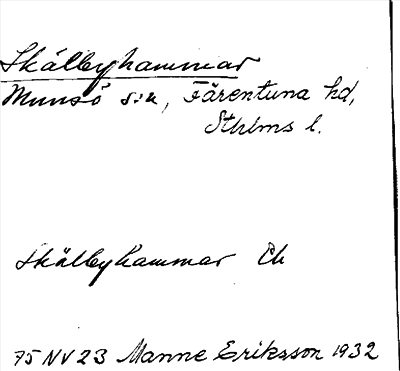 Skälbyhammar
Munsö s:n, Färentuna hd,
Sthlms l.
Skälbyhammar Ek
75 NV 23 Manne Eriksson 1932